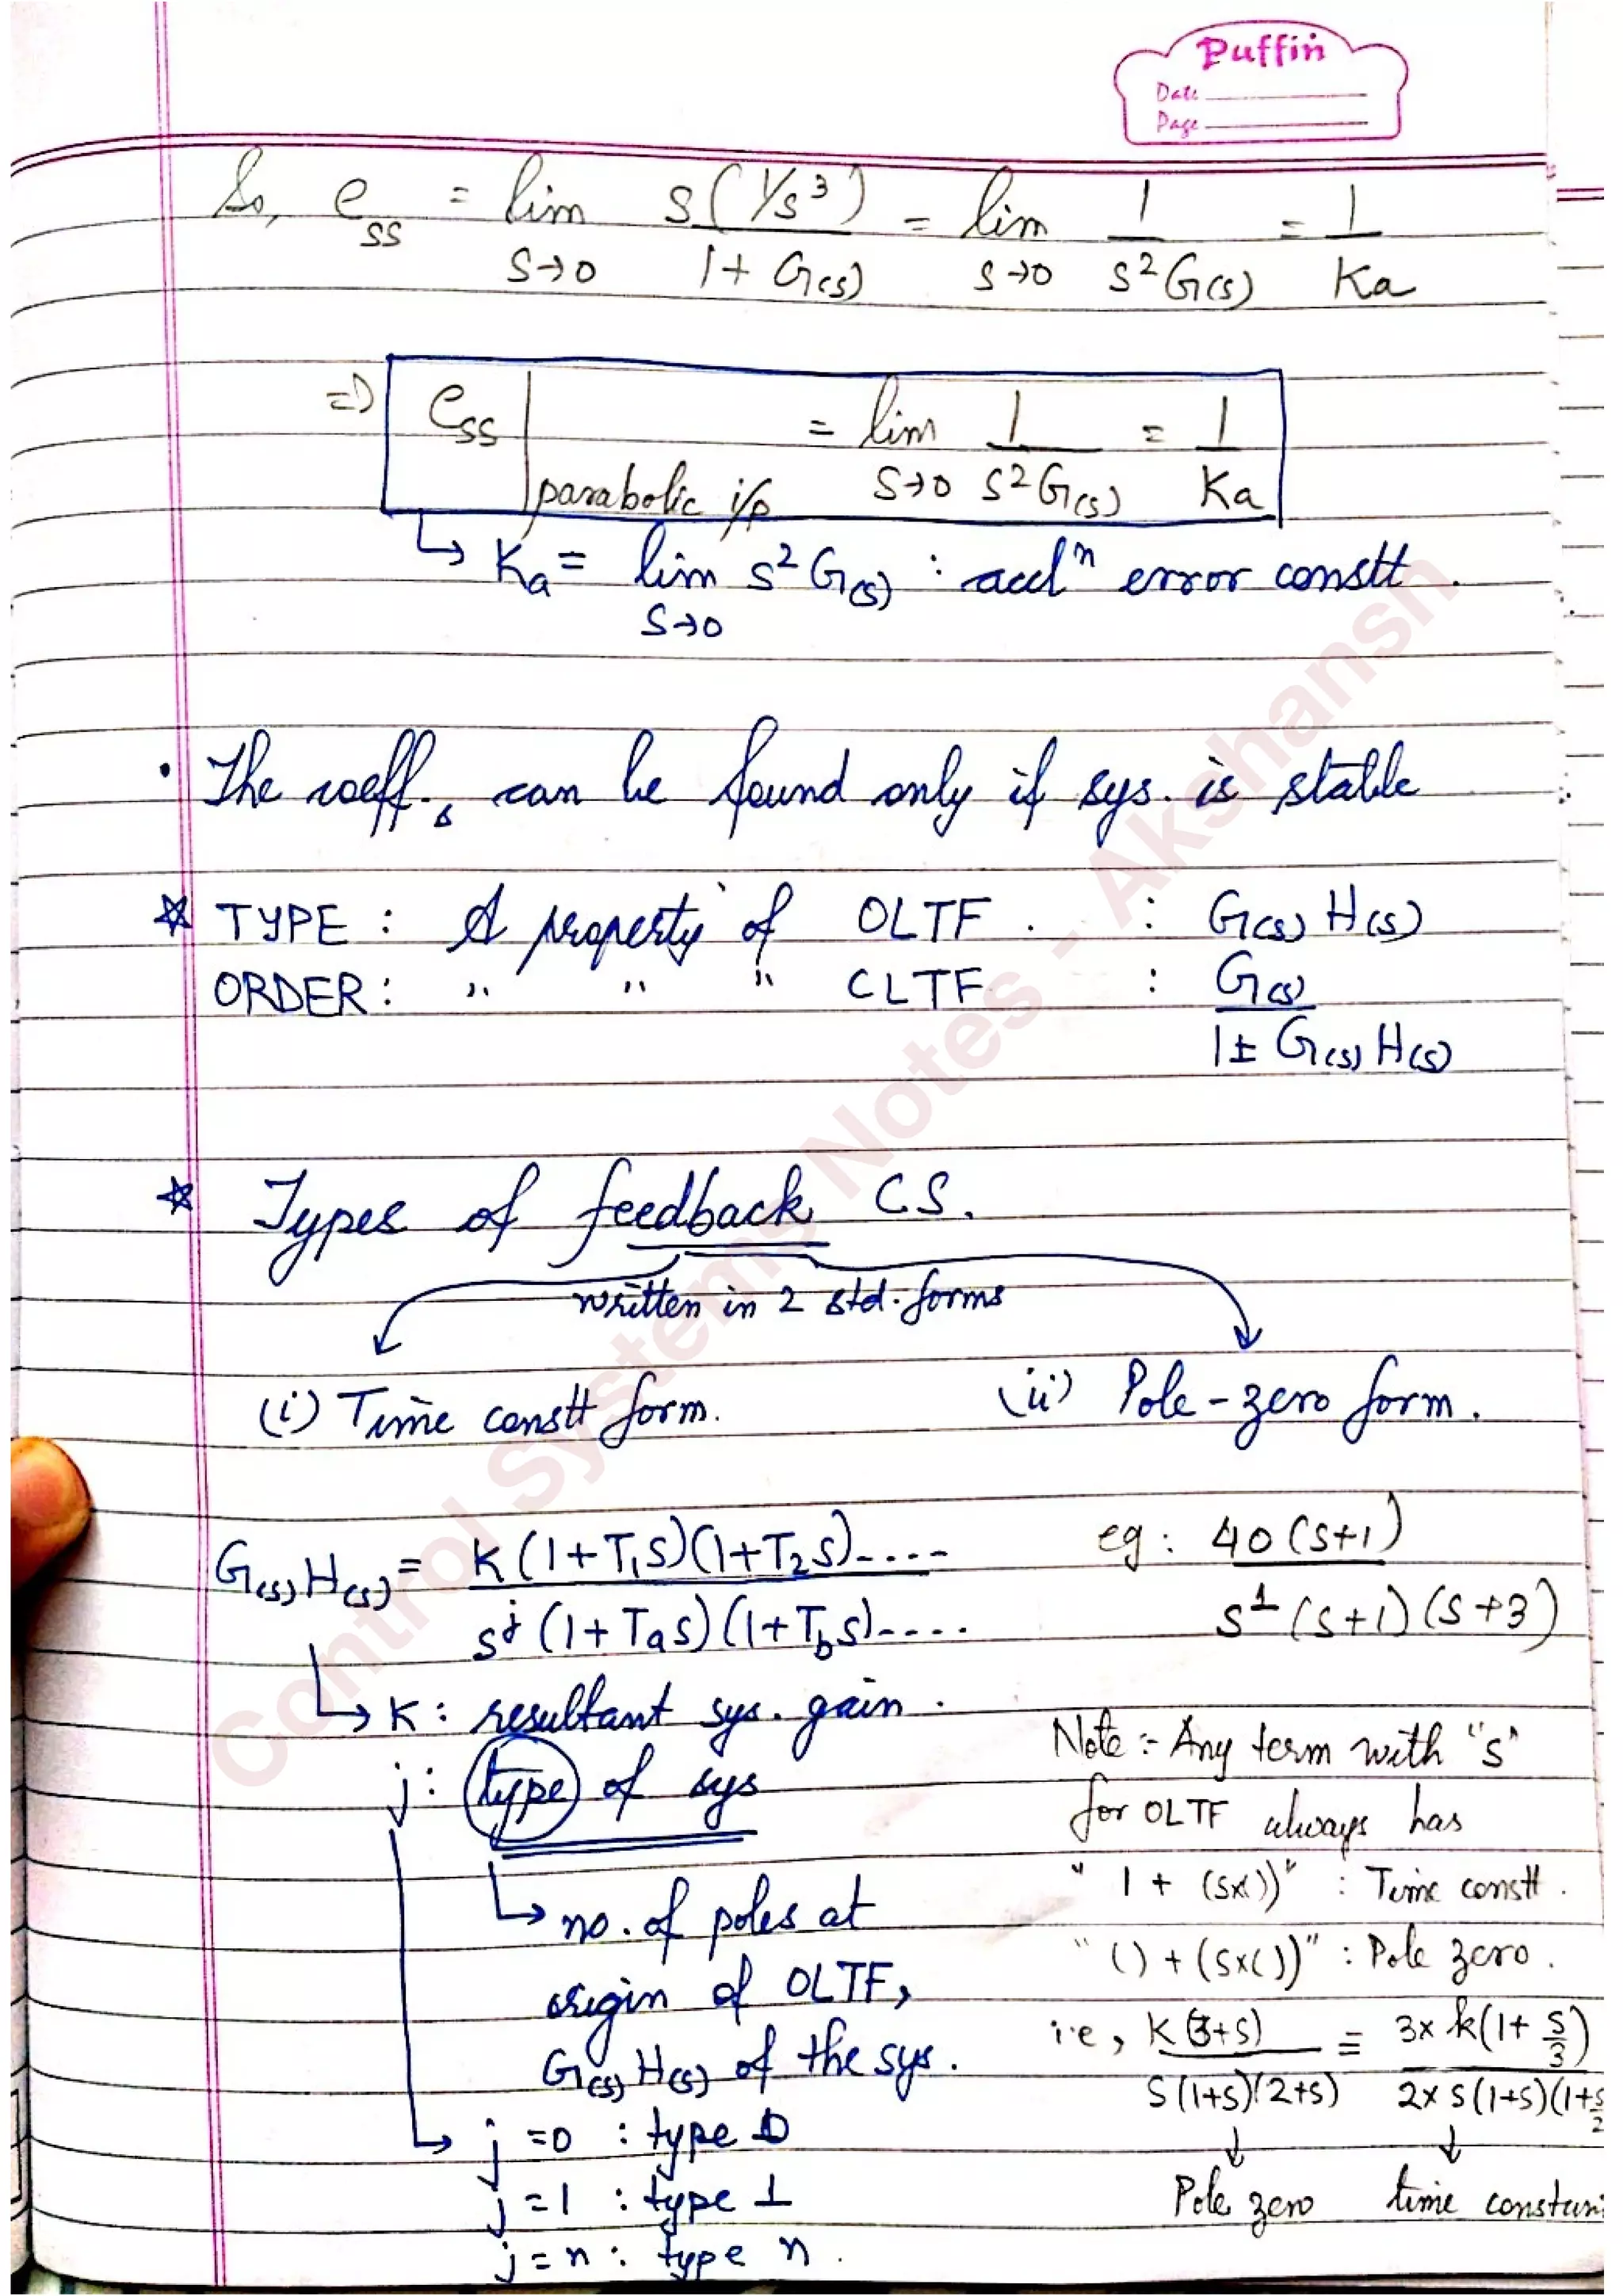 Puffin
Date
Page
So, e_ss = lim s→0 s(1/s³) / 1+G(s) = lim s→0 1 / s²G(s) = 1 / Ka
=> e_ss | parabolic i/p = lim s→0 1 / s²G(s) = 1 / Ka
↳ Ka = lim s→0 s²G(s) : accl^n error constt.
• The coeff.s can be found only if sys. is stable
☆ TYPE : A property of OLTF . : G(s) H(s)
ORDER : " " " CLTF : G(s) / 1± G(s) H(s)
☆ Types of feedback CS.
written in 2 std. forms
(i) Time constt form.
(ii) Pole-zero form.
G(s)H(s) = K(1+T₁s)(1+T₂s)---- / s^j (1+Tas)(1+Tbs)----
eg : 40(s+1) / s¹(s+1)(s+3)
↳ K : resultant sys. gain.
j : type of sys
↳ no. of poles at
origin of OLTF,
G(s)H(s) of the sys.
↳ j=0 : type 0
j=1 : type 1
j=n : type n.
Note :- Any term with "s"
for OLTF always has
" 1 + (sx())" : Time constt.
" () + (sx())" : Pole zero.
i.e, K(3+s) / s(1+s)(2+s) ≡ 3x k(1+ s/3) / 2x s(1+s)(1+s/2
↓ ↓
Pole zero time constan
Control Systems Notes - Akshansh